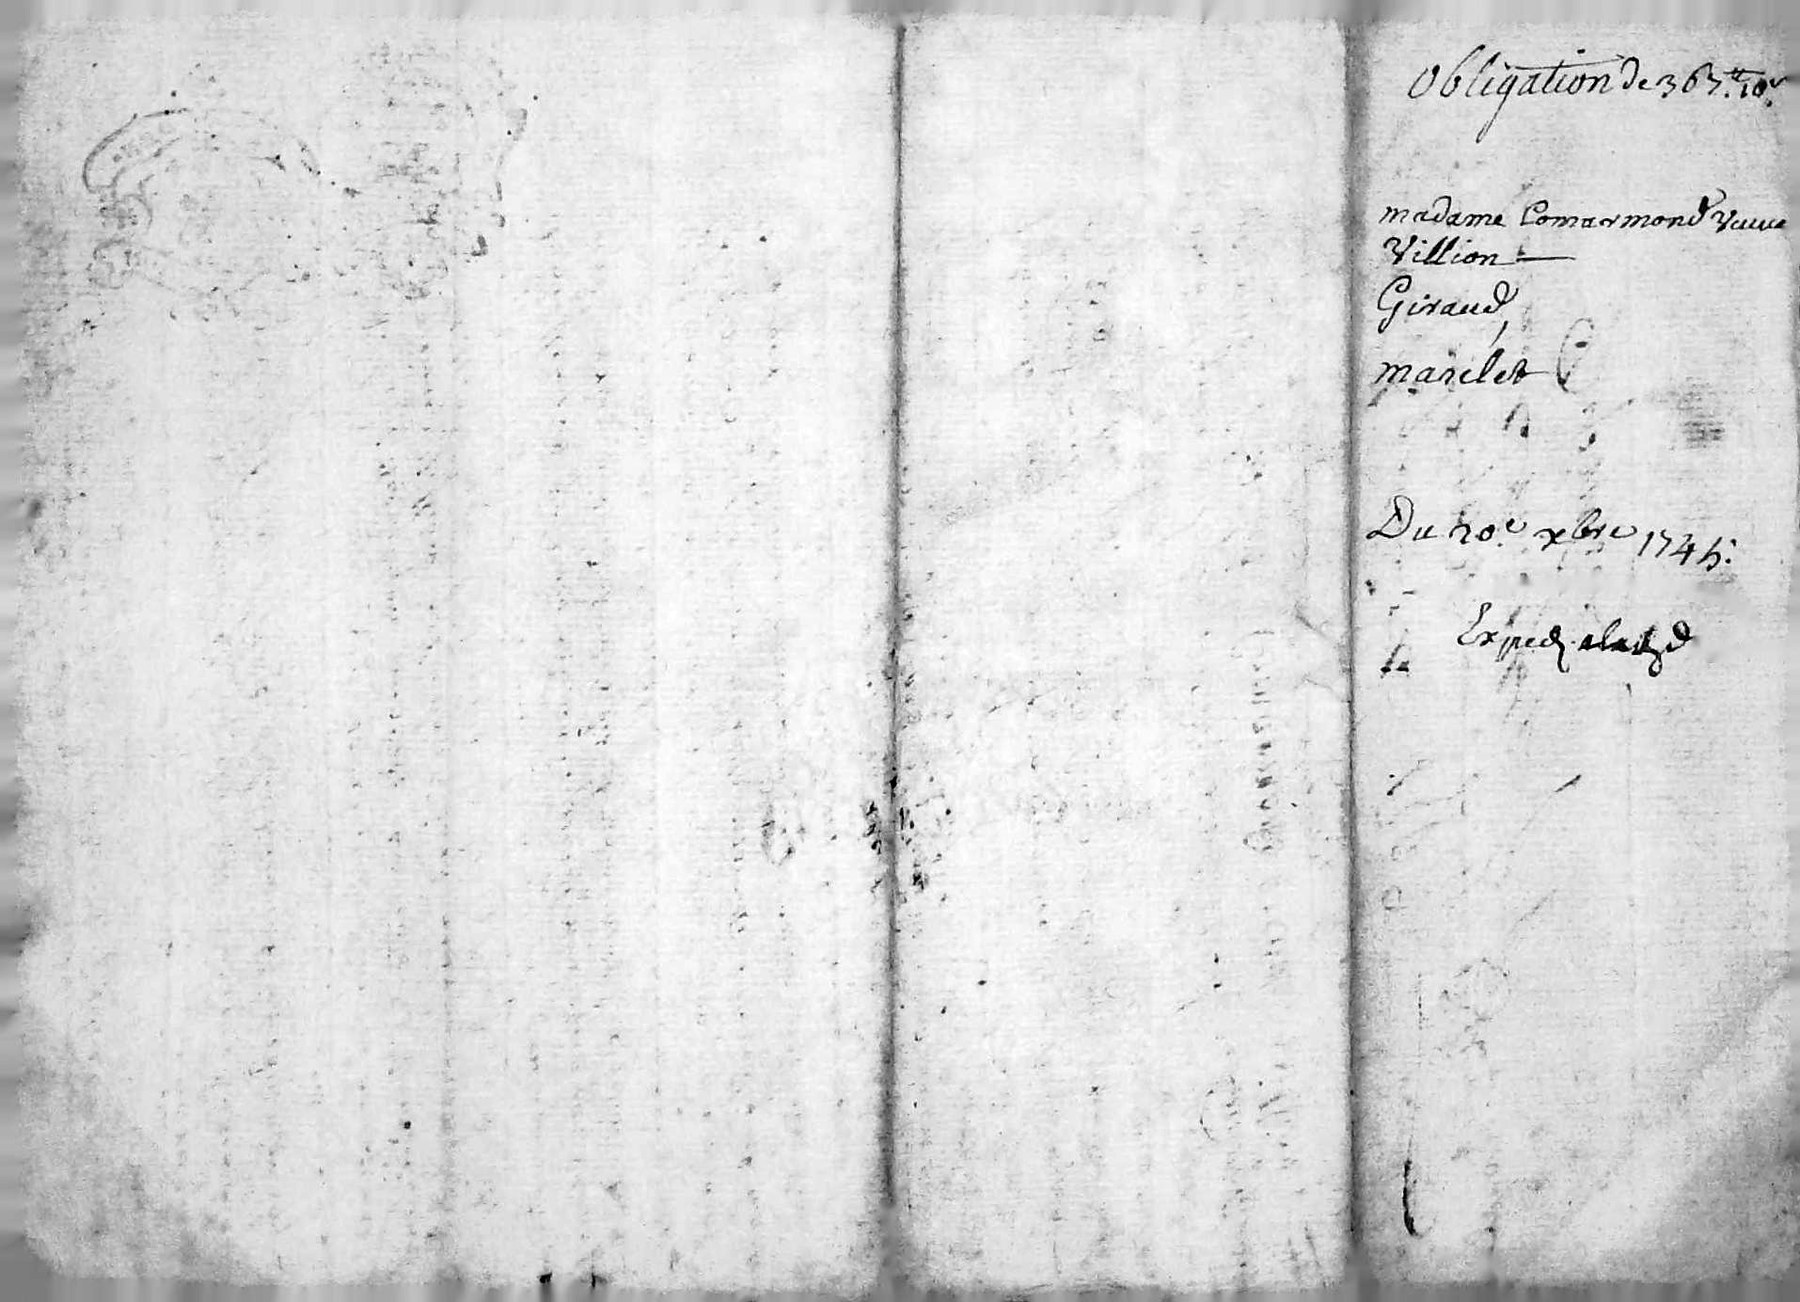 Obligation de 367.tt 10.s
madame Comarmond Veuve
Villion
Giraud,
marclet
Du 20.e xbre 1745.
Exped.